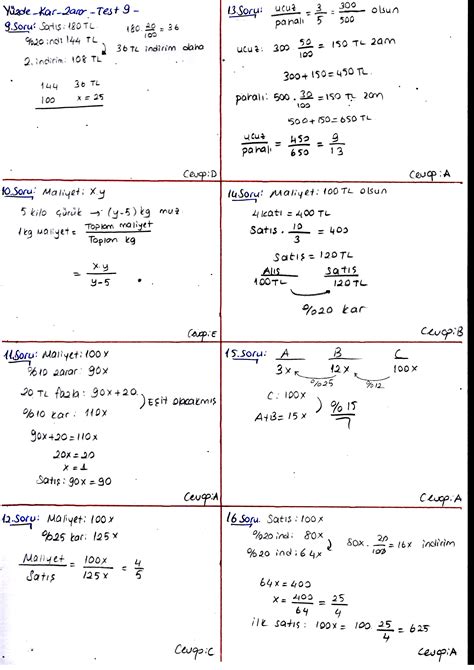 Yüzde-Kar-Zarar-Test 9-
9.Soru: Satış: 180 TL
180 . 20/100 = 36
%20 ind: 144 TL
36 TL indirim daha
2. indirim: 108 TL
144 36 TL
100 x = 25
Cevap: D
10.Soru: Maliyet: x.y
5 kilo çürük → (y-5) kg muz
1kg Maliyet = Toplam maliyet / Toplam kg
= x.y / y-5
Cevap: E
11.Soru: Maliyet: 100x
%10 zarar: 90x
20 TL fazla: 90x+20
Eşit olacakmış
%10 kar: 110x
90x+20 = 110x
20x = 20
x = 1
Satış: 90x = 90
Cevap: A
12.Soru: Maliyet: 100x
%25 kar: 125x
Maliyet / Satış = 100x / 125x = 4/5
Cevap: C
13.Soru: ucuz / pahalı = 3/5 = 300/500 olsun
ucuz: 300 . 50/100 = 150 TL zam
300 + 150 = 450 TL
pahalı: 500 . 30/100 = 150 TL zam
500 + 150 = 650 TL
ucuz / pahalı = 450/650 = 9/13
Cevap: A
14.Soru: Maliyet: 100 TL olsun
4 katı = 400 TL
Satış . 10/3 = 400
Satış = 120 TL
Alış Satış
100 TL 120 TL
%20 kar
Cevap: B
15.Soru: A B C
3x 12x 100x
%25 %12
C: 100x
A+B = 15x
%15
Cevap: A
16.Soru: Satış: 100x
%20 ind: 80x
80x . 20/100 = 16x indirim
%20 ind: 64x
64x = 400
x = 400/64 = 25/4
ilk satış: 100x = 100 . 25/4 = 625
Cevap: A